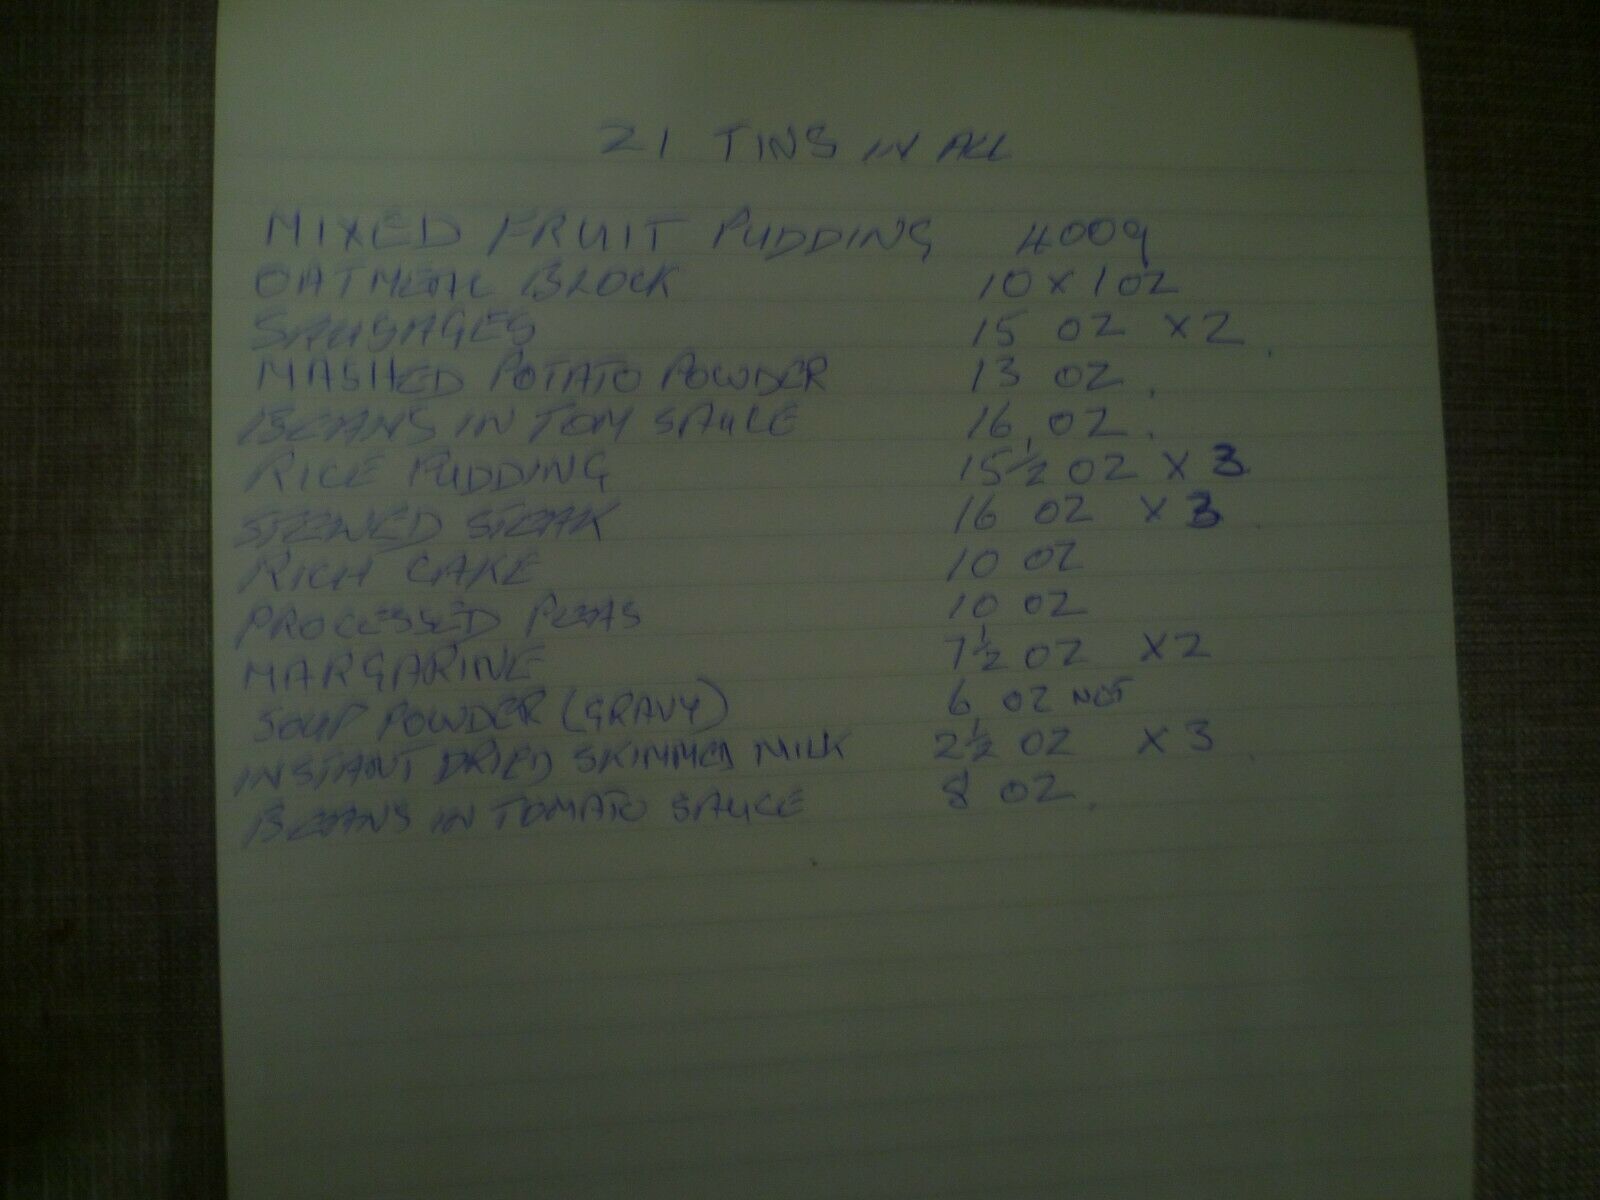 21 TINS IN ALL
MIXED FRUIT PUDDING 400g
OATMEAL BLOCK 10 x 1 OZ
SAUSAGES 15 OZ x 2
MASHED POTATO POWDER 13 OZ.
BEANS IN TOM SAUCE 16 OZ.
RICE PUDDING 15 1/2 OZ x 3
STEWED STEAK 16 OZ x 3
RICH CAKE 10 OZ
PROCESSED PEAS 10 OZ
MARGARINE 7 1/2 OZ x 2
SOUP POWDER (GRAVY) 6 OZ NOT
INSTANT DRIED SKIMMED MILK 2 1/2 OZ x 3
BEANS IN TOMATO SAUCE 8 OZ.